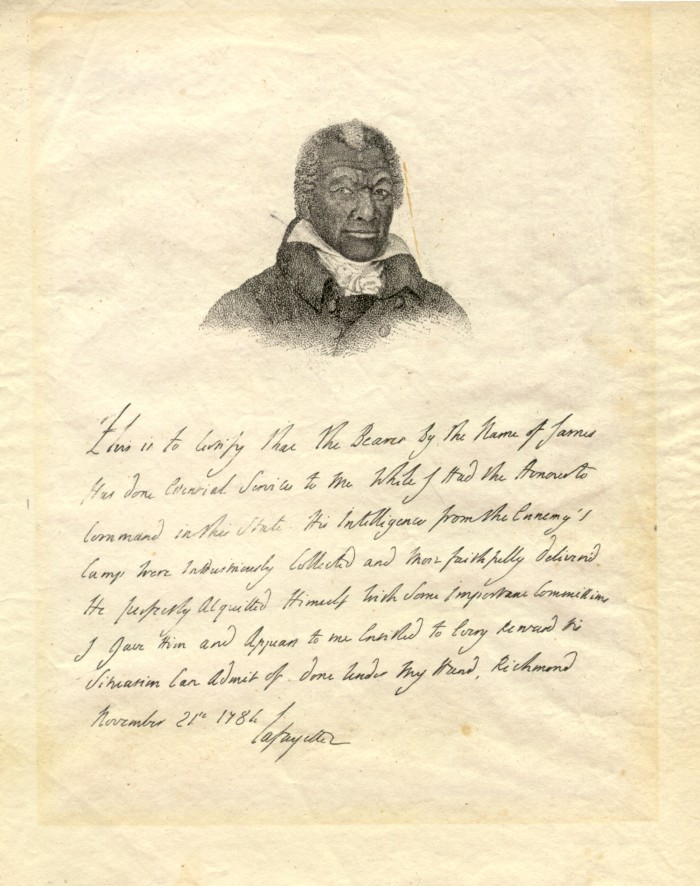 "This is to Certify that the Bearer By the Name of James
Has done Essential Services to Me While I Had the Honour to
Command in this State. His Intelligences from the Ennemy's
Camp were Industriously Collected and More faithfully deliver'd.
He perfectly Acquitted Himself with Some Important Commissions
I Gave Him and Appears to me Entitled to Every Reward his
Situation Can Admit of. Done Under My Hand, Richmond
November 21st 1784
Lafayette